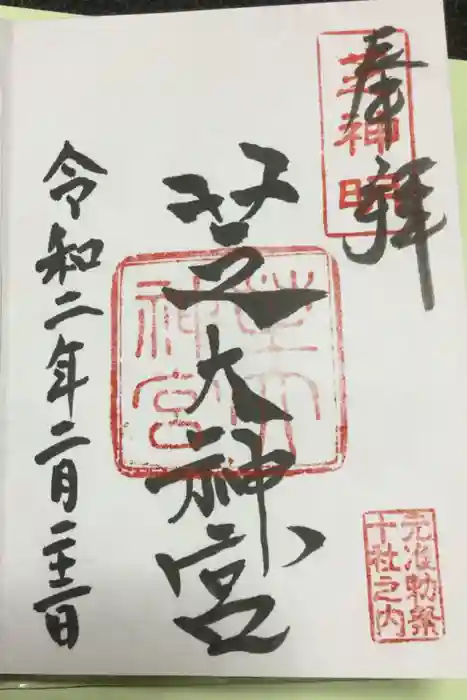 奉拝
芝神明
芝大神宮
芝大神宮
元准勅祭
十社之内
令和二年二月二十三日